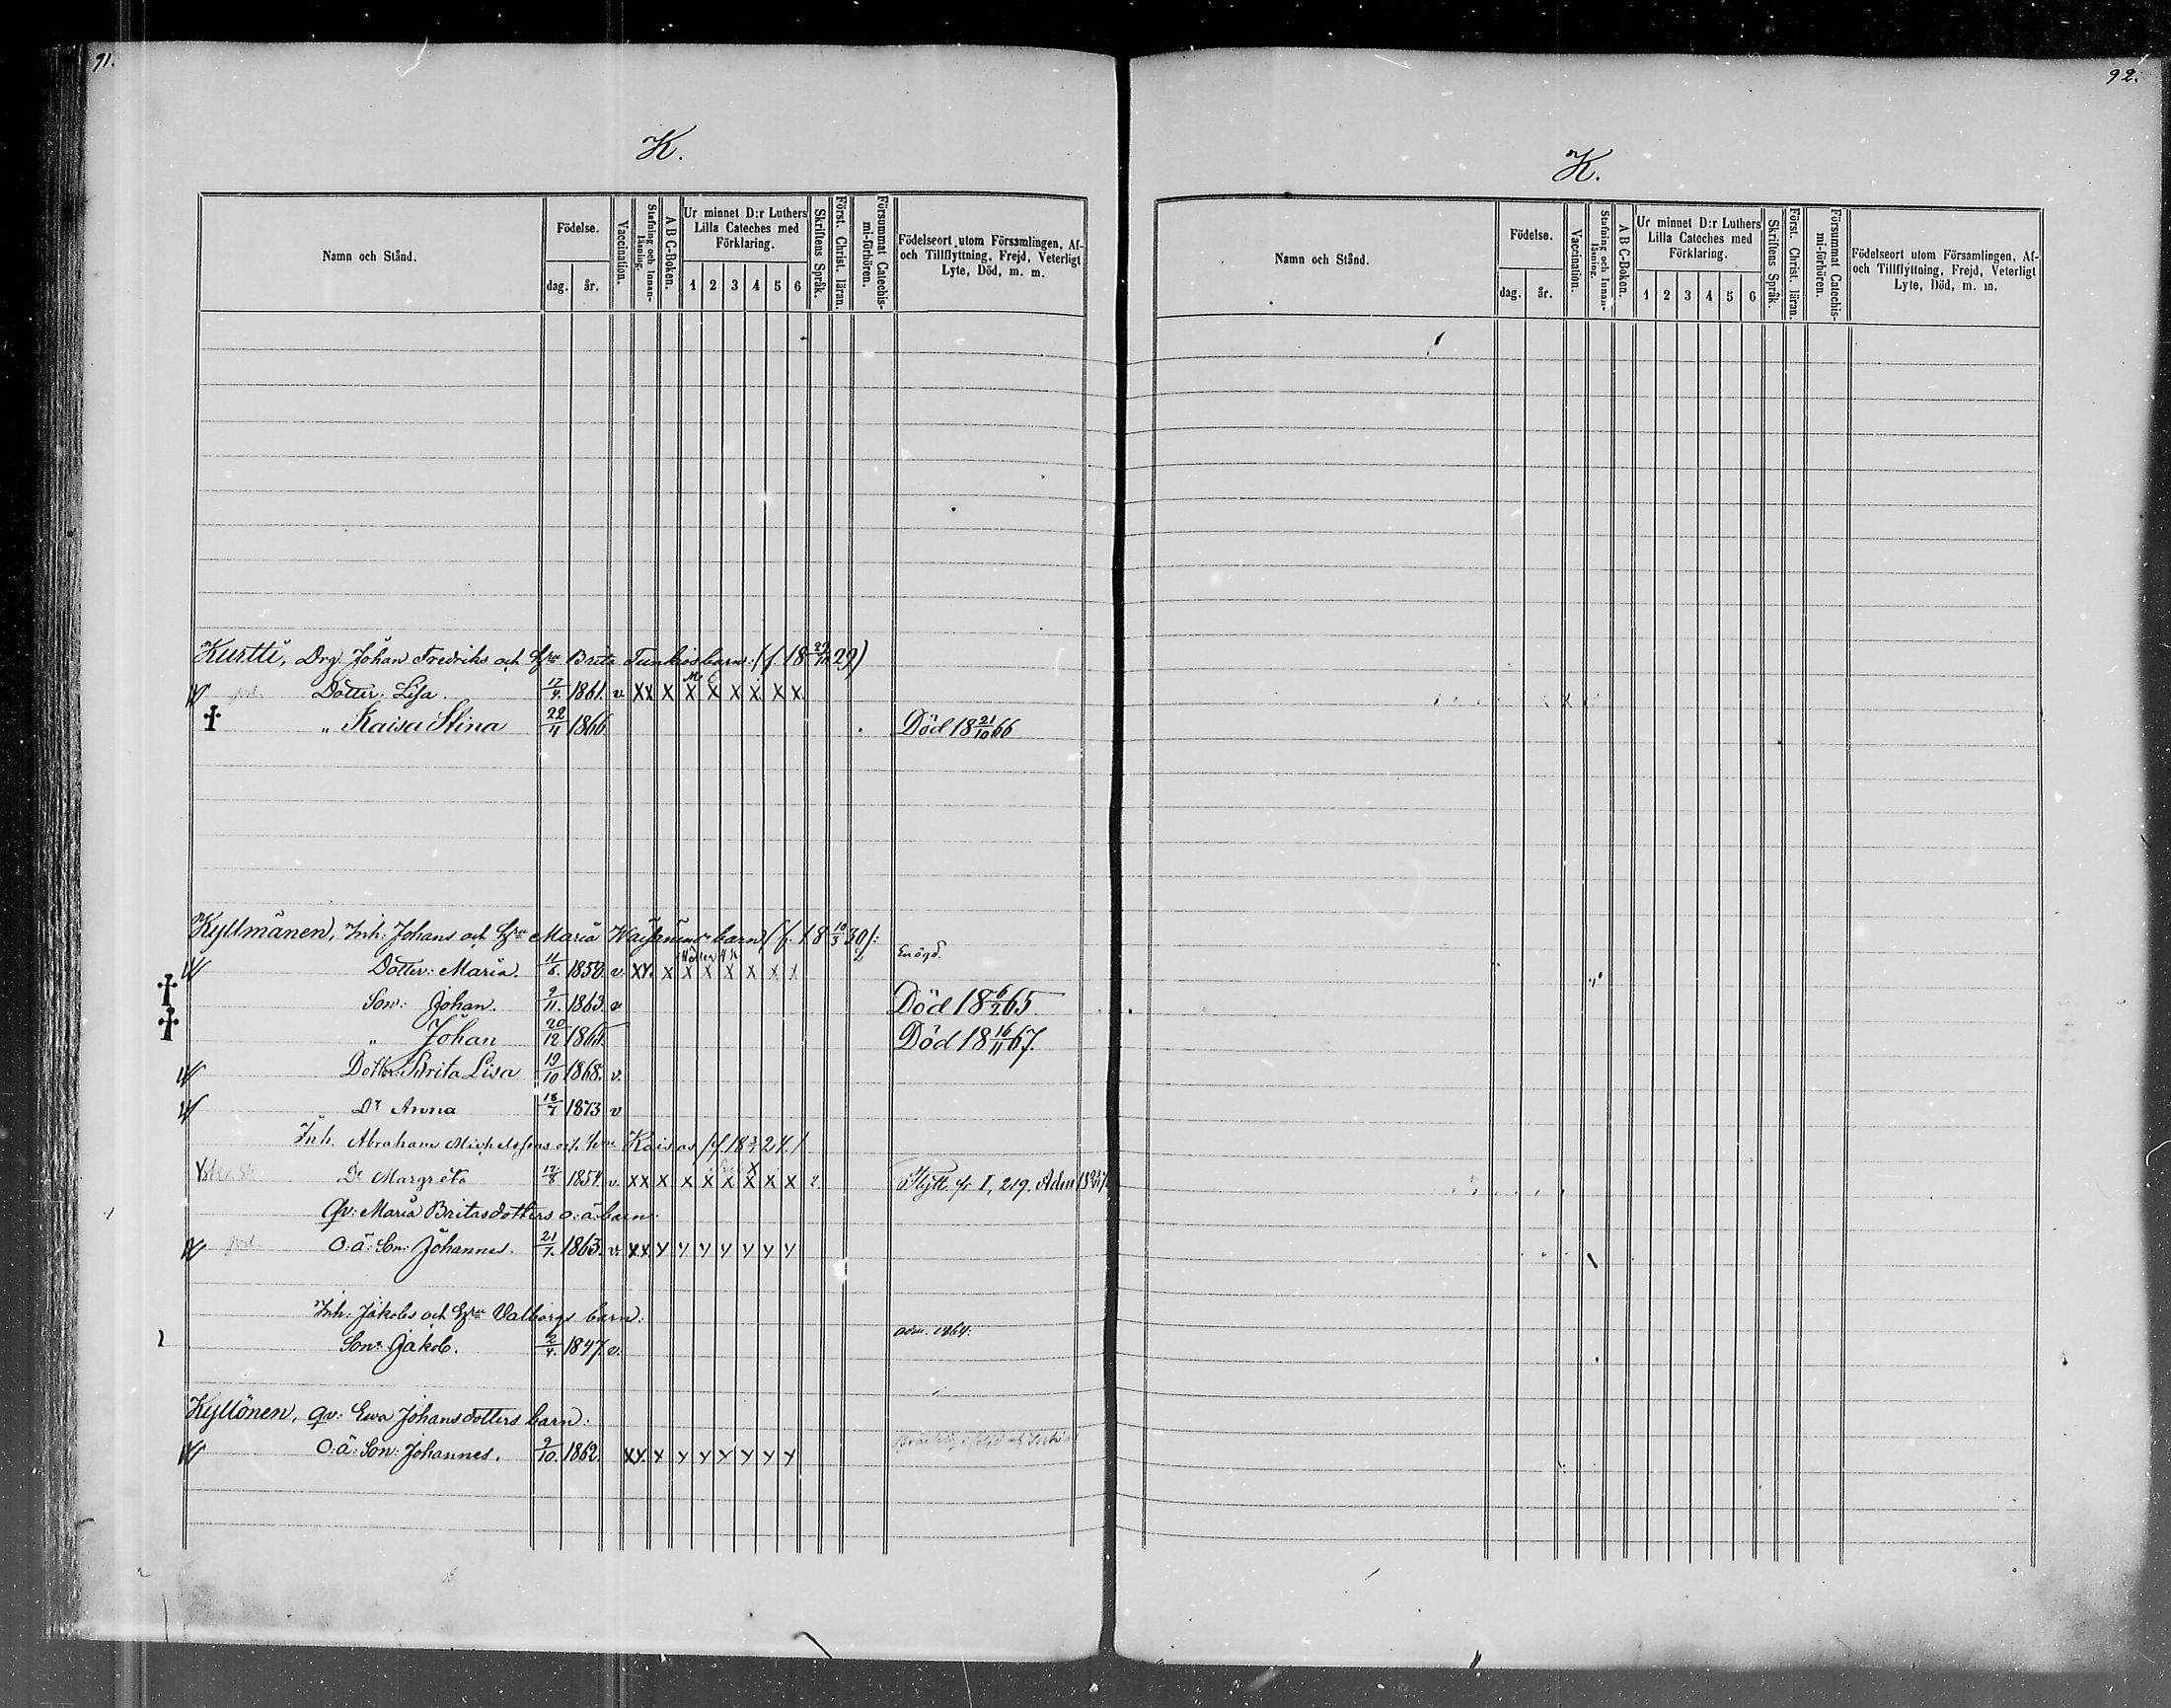 91.
K.
Namn och Stånd.
Födelse.
dag. år.
Vaccination.
Stafning och Innan-läsning.
A B C-Boken.
Ur minnet D:r Luthers Lilla Cateches med Förklaring.
1 2 3 4 5 6
Skriftens Språk.
Först. Christ. läran.
Försummat Catechis-mi-förhören.
Födelseort utom Församlingen, Af- och Tillflyttning, Frejd, Veterligt Lyte, Död, m. m.
Kurtti, Drg. Johan Fredriks och Hru Brita barn: (f. 18 29)
Dotter: Lisa. 17/4. 1861. v. XX X X X X X X X
" Kaisa Stina 22/4 1866 Död 18 21/10 66
Kyllmänen, Inh: Johans och Hru Maria barn (f. 18 10/3 30/:
Dotter: Maria. 11/6. 1858. v. XX. X X X X X X X Enögd.
Son: Johan. 9/11. 1863. v. Död 18 6/2 65
" Johan 20/12 1865 Död 18 16/11 67.
Dotter: Brita Lisa 19/10 1868. v.
Dr Anna 18/7 1873 v
Inh. Abraham Michelssons och Hru Kaisas /f. 18 24/
Dr Margreta 12/8 1854. v. XX X X X X X X X 2. Flytt. fr I, 219.
Qv: Maria Britasdotters o: ä: barn:
O: ä: Son: Johannes. 21/7. 1863. v. XX Y Y Y Y Y Y Y
Inh: Jakobs och Hru Valborgs barn:
Son: Jakob. 2/4. 1847. v. adm. 1864.
Kyllönen, Qv: Ewa Johansdotters barn:
O: ä: Son: Johannes. 9/10. 1862. XX. Y Y Y Y Y Y Y
92.
K.
Namn och Stånd.
Födelse.
dag. år.
Vaccination.
Stafning och Innan-läsning.
A B C-Boken.
Ur minnet D:r Luthers Lilla Cateches med Förklaring.
1 2 3 4 5 6
Skriftens Språk.
Först. Christ. läran.
Försummat Catechis-mi-förhören.
Födelseort utom Församlingen, Af- och Tillflyttning, Frejd, Veterligt Lyte, Död, m. m.